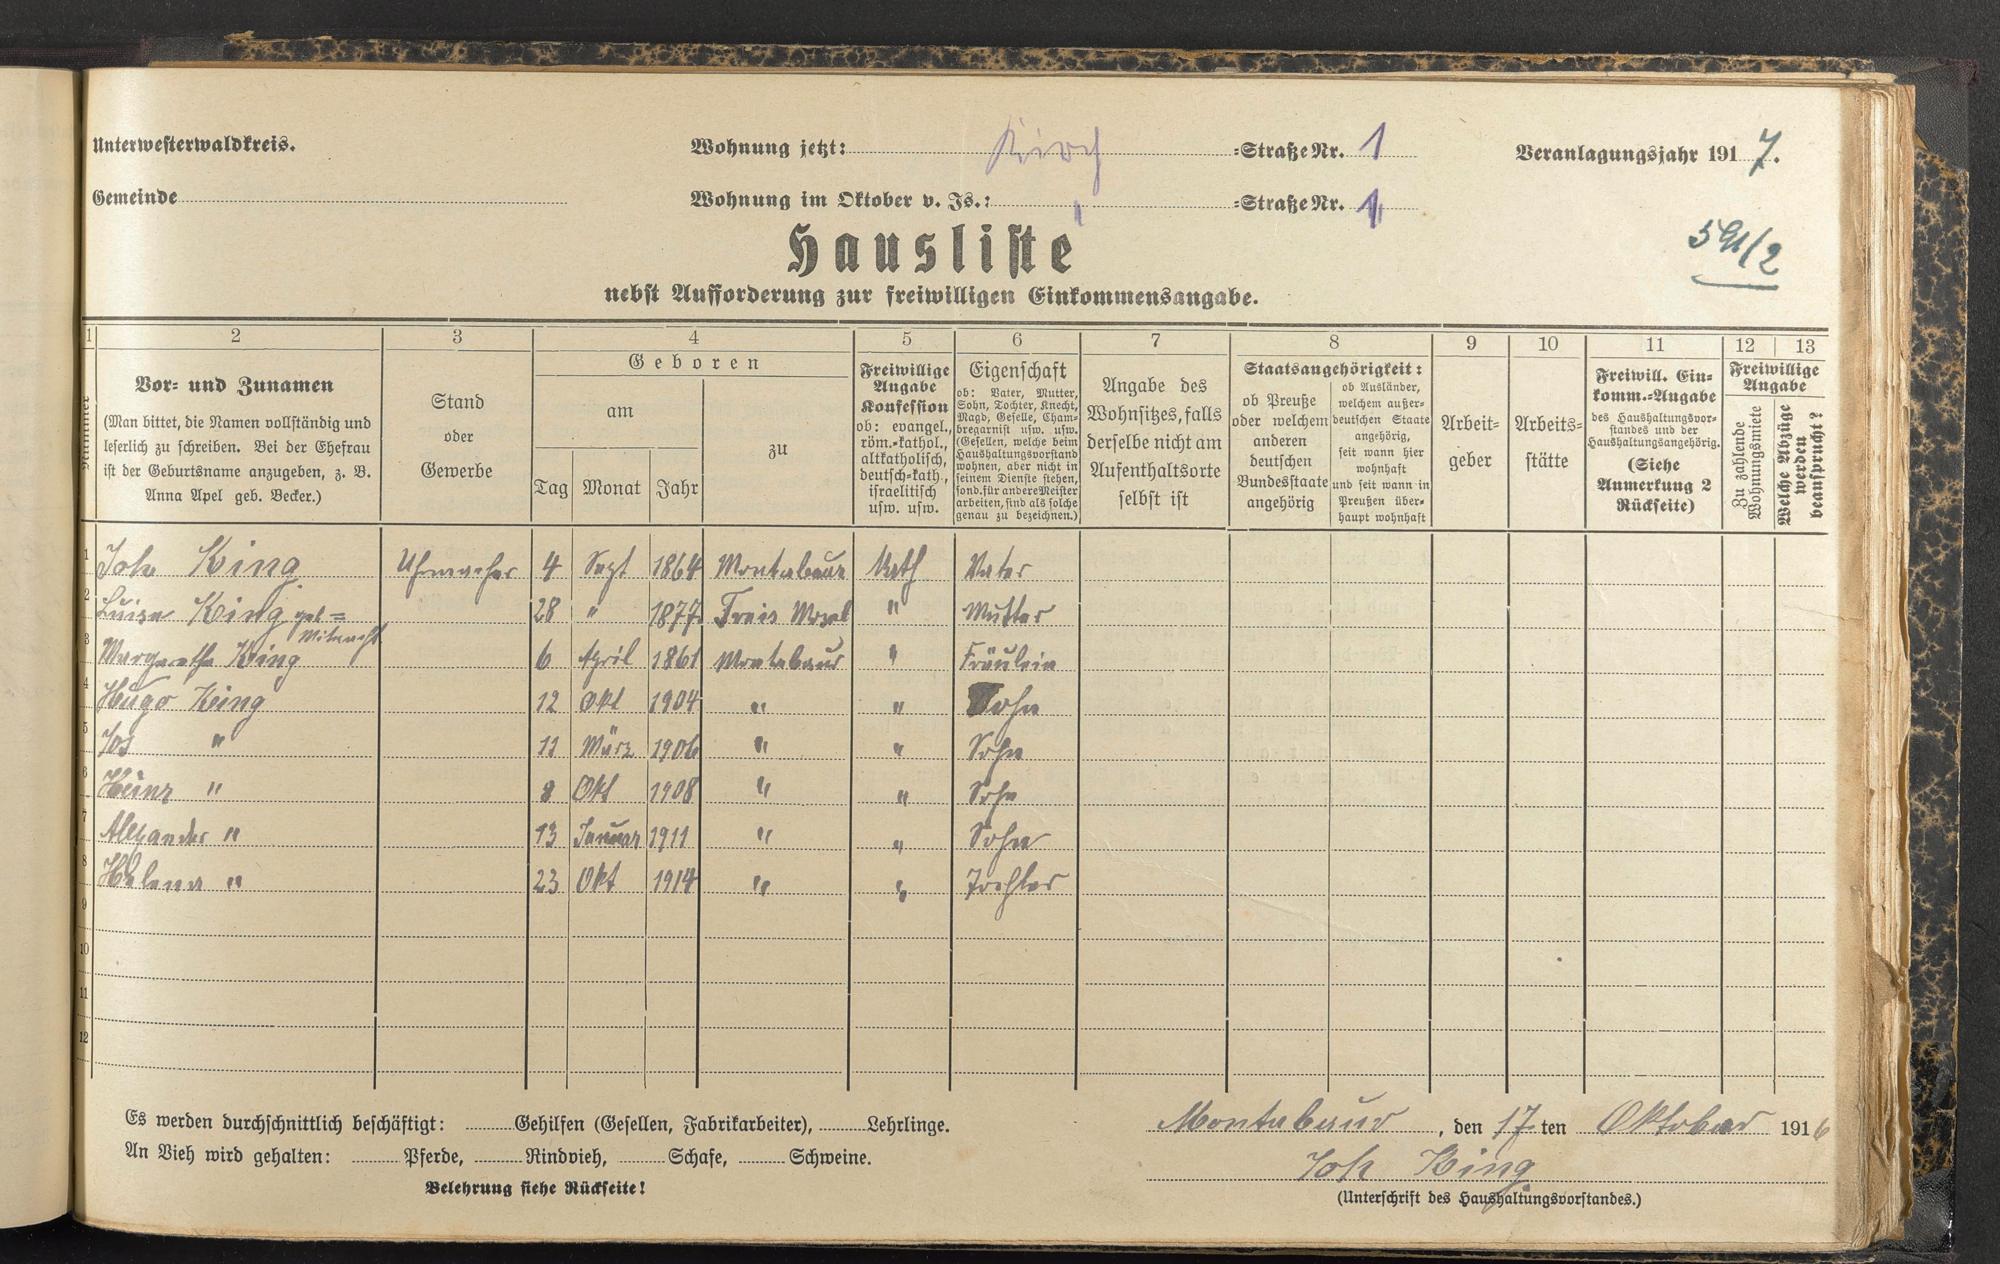 Unterwesterwaldkreis.
Wohnung jetzt: Kirch =Straße Nr. 1
Veranlagungsjahr 1917.
Gemeinde
Wohnung im Oktober v. Js.: " =Straße Nr. 1
Hausliste
nebst Aufforderung zur freiwilligen Einkommensangabe.
1 2 3 4 5 6 7 8 9 10 11 12 13
Nummer
Vor- und Zunamen
(Man bittet, die Namen vollständig und
leserlich zu schreiben. Bei der Ehefrau
ist der Geburtsname anzugeben, z. B.
Anna Apel geb. Becker.)
Stand
oder
Gewerbe
Geboren
am
Tag Monat Jahr
zu
Freiwillige
Angabe
Konfession
ob: evangel.,
röm.-kathol.,
altkatholisch,
deutsch-kath.,
israelitisch
usw. usw.
Eigenschaft
ob: Vater, Mutter,
Sohn, Tochter, Knecht,
Magd, Geselle, Cham-
bregarnist usw. usw.
(Gesellen, welche beim
Haushaltungsvorstand
wohnen, aber nicht in
seinem Dienste stehen,
sond. für andere Meister
arbeiten, sind als solche
genau zu bezeichnen.)
Angabe des
Wohnsitzes, falls
derselbe nicht am
Aufenthaltsorte
selbst ist
Staatsangehörigkeit:
ob Preuße
oder welchem
anderen
deutschen
Bundesstaate
angehörig
ob Ausländer,
welchem außer-
deutschen Staate
angehörig,
seit wann hier
wohnhaft
und seit wann in
Preußen über-
haupt wohnhaft
Arbeit-
geber
Arbeits-
stätte
Freiwill. Ein-
komm.-Angabe
des Haushaltungsvor-
standes und der
Haushaltungsangehörig.
(Siehe
Anmerkung 2
Rückseite)
Freiwillige
Angabe
Zu zahlende
Wohnungsmiete
Welche Abzüge
werden
beansprucht?
1 Joh King Uhrmacher 4 Sept 1864 Montabaur Kath Vater
2 Luise King geb= 28 " 1877 Treis Mosel " Mutter
3 Margaretha King 6 April 1861 Montabaur " Fräulein
4 Hugo King 12 Okt 1904 " " Sohn
5 Jos " 11 März 1906 " " Sohn
6 Heinz " 8 Okt 1908 " " Sohn
7 Alexander " 13 Januar 1911 " " Sohn
8 Helena " 23 Okt 1914 " " Tochter
9
10
11
12
Es werden durchschnittlich beschäftigt: Gehilfen (Gesellen, Fabrikarbeiter), Lehrlinge.
An Vieh wird gehalten: Pferde, Rindvieh, Schafe, Schweine.
Belehrung siehe Rückseite!
Montabaur, den 17 ten Oktober 1916
Joh King
(Unterschrift des Haushaltungsvorstandes.)